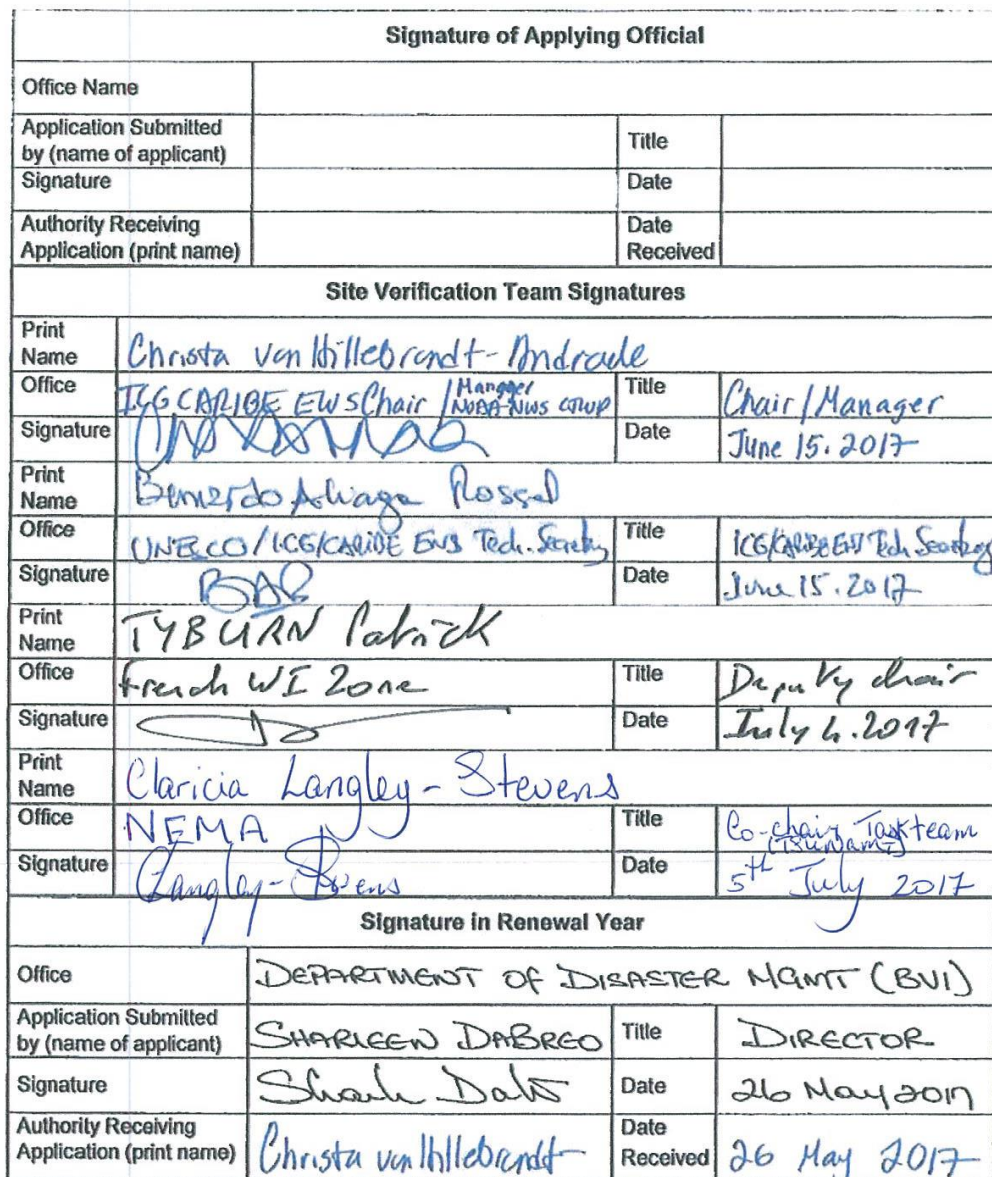 Signature of Applying Official
Office Name
Application Submitted by (name of applicant)
Title
Signature
Date
Authority Receiving Application (print name)
Date Received
Site Verification Team Signatures
Print Name Christa von Hillebrandt-Andrade
Office ICG CARIBE EWS Chair / Manager NOAA NWS CTWP Title Chair/Manager
Signature Date June 15. 2017
Print Name Bernardo Aliaga Rossel
Office UNESCO/ICG/CARIBE EWS Tech. Secretary Title ICG/CARIBE EWS Tech Secretary
Signature BAR Date June 15. 2017
Print Name TYBURN Patrick
Office French WI Zone Title Deputy chair
Signature Date July 4. 2017
Print Name Claricia Langley-Stevens
Office NEMA Title Co-chair Task team (Tsunami)
Signature CLangley-Stevens Date 5th July 2017
Signature in Renewal Year
Office DEPARTMENT OF DISASTER MGMT (BVI)
Application Submitted by (name of applicant) SHARLEEN DABREO Title DIRECTOR
Signature Date 26 May 2017
Authority Receiving Application (print name) Christa von Hillebrandt- Date Received 26 May 2017